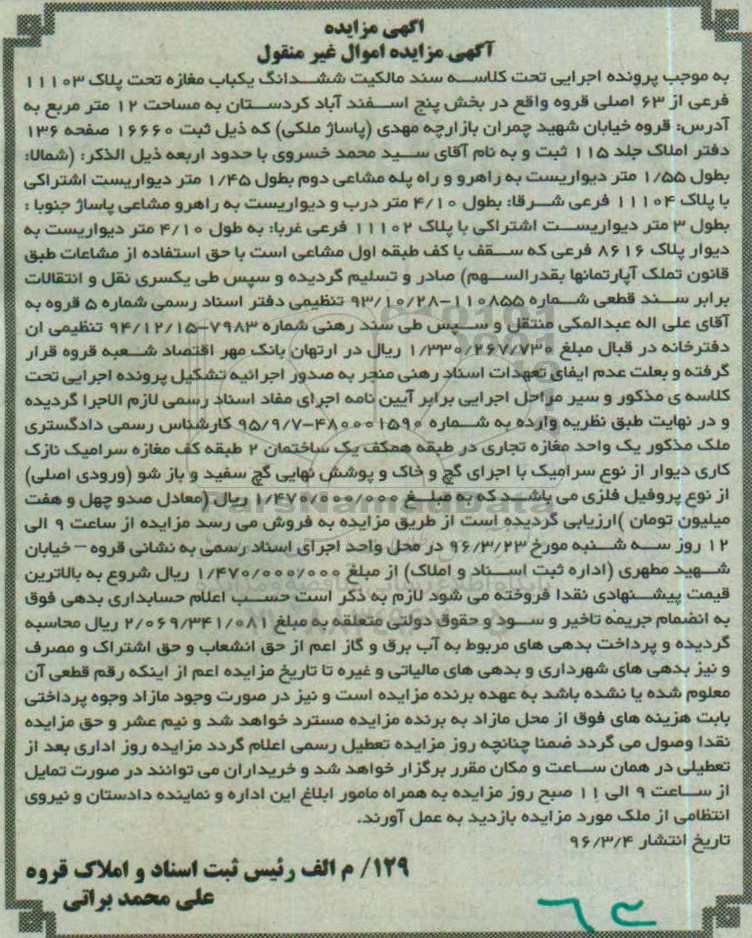 آگهی مزایده
آگهی مزایده اموال غیر منقول
به موجب پرونده اجرایی تحت کلاسه سند مالکیت ششدانگ یکباب مغازه تحت پلاک ۱۱۱۰۳
فرعی از ۶۳ اصلی قروه واقع در بخش پنج اسفند آباد کردستان به مساحت ۱۲ متر مربع به
آدرس: قروه خیابان شهید چمران بازارچه مهدی (پاساژ ملکی) که ذیل ثبت ۱۶۶۶۰ صفحه ۱۳۶
دفتر املاک جلد ۱۱۵ ثبت و به نام آقای سید محمد خسروی با حدود اربعه ذیل الذکر: (شمالا:
بطول ۱/۵۵ متر دیواریست به راهرو و راه پله مشاعی دوم بطول ۱/۴۵ متر دیواریست اشتراکی
با پلاک ۱۱۱۰۴ فرعی شرقا: بطول ۴/۱۰ متر درب و دیواریست به راهرو مشاعی پاساژ جنوبا :
بطول ۳ متر دیواریست اشتراکی با پلاک ۱۱۱۰۲ فرعی غربا: به طول ۴/۱۰ متر دیواریست به
دیوار پلاک ۸۶۱۶ فرعی که سقف با کف طبقه اول مشاعی است با حق استفاده از مشاعات طبق
قانون تملک آپارتمانها بقدرالسهم) صادر و تسلیم گردیده و سپس طی یکسری نقل و انتقالات
برابر سند قطعی شماره ۱۱۰۸۵۵-۹۳/۱۰/۲۸ تنظیمی دفتر اسناد رسمی شماره ۵ قروه به
آقای علی اله عبدالمکی منتقل و سپس طی سند رهنی شماره ۷۹۸۳-۹۴/۱۲/۱۵ تنظیمی ان
دفترخانه در قبال مبلغ ۱/۳۳۰/۲۶۷/۷۳۰ ریال در ارتهان بانک مهر اقتصاد شعبه قروه قرار
گرفته و بعلت عدم ایفای تعهدات اسناد رهنی منجر به صدور اجرائیه تشکیل پرونده اجرایی تحت
کلاسه ی مذکور و سیر مراحل اجرایی برابر آیین نامه اجرای مفاد اسناد رسمی لازم الاجرا گردیده
و در نهایت طبق نظریه وارده به شماره ۴۸۰۰۰۱۵۹۰-۹۵/۹/۷ کارشناس رسمی دادگستری
ملک مذکور یک واحد مغازه تجاری در طبقه همکف یک ساختمان ۲ طبقه کف مغازه سرامیک نازک
کاری دیوار از نوع سرامیک با اجرای گچ و خاک و پوشش نهایی گچ سفید و باز شو (ورودی اصلی)
از نوع پروفیل فلزی می باشد که به مبلغ ۱/۴۷۰/۰۰۰/۰۰۰ ریال (معادل صدو چهل و هفت
میلیون تومان )ارزیابی گردیده است از طریق مزایده به فروش می رسد مزایده از ساعت ۹ الی
۱۲ روز سه شنبه مورخ ۹۶/۳/۲۳ در محل واحد اجرای اسناد رسمی به نشانی قروه – خیابان
شهید مطهری (اداره ثبت اسناد و املاک) از مبلغ ۱/۴۷۰/۰۰۰/۰۰۰ ریال شروع به بالاترین
قیمت پیشنهادی نقدا فروخته می شود لازم به ذکر است حسب اعلام حسابداری بدهی فوق
به انضمام جریمه تاخیر و سود و حقوق دولتی متعلقه به مبلغ ۲/۰۶۹/۳۴۱/۰۸۱ ریال محاسبه
گردیده و پرداخت بدهی های مربوط به آب برق و گاز اعم از حق انشعاب و حق اشتراک و مصرف
و نیز بدهی های شهرداری و بدهی های مالیاتی و غیره تا تاریخ مزایده اعم از اینکه رقم قطعی آن
معلوم شده یا نشده باشد به عهده برنده مزایده است و نیز در صورت وجود مازاد وجوه پرداختی
بابت هزینه های فوق از محل مازاد به برنده مزایده مسترد خواهد شد و نیم عشر و حق مزایده
نقدا وصول می گردد ضمنا چنانچه روز مزایده تعطیل رسمی اعلام گردد مزایده روز اداری بعد از
تعطیلی در همان ساعت و مکان مقرر برگزار خواهد شد و خریداران می توانند در صورت تمایل
از ساعت ۹ الی ۱۱ صبح روز مزایده به همراه مامور ابلاغ این اداره و نماینده دادستان و نیروی
انتظامی از ملک مورد مزایده بازدید به عمل آورند.
تاریخ انتشار ۹۶/۳/۴
۱۲۹/ م الف رئیس ثبت اسناد و املاک قروه
علی محمد براتی
ParsNamadData